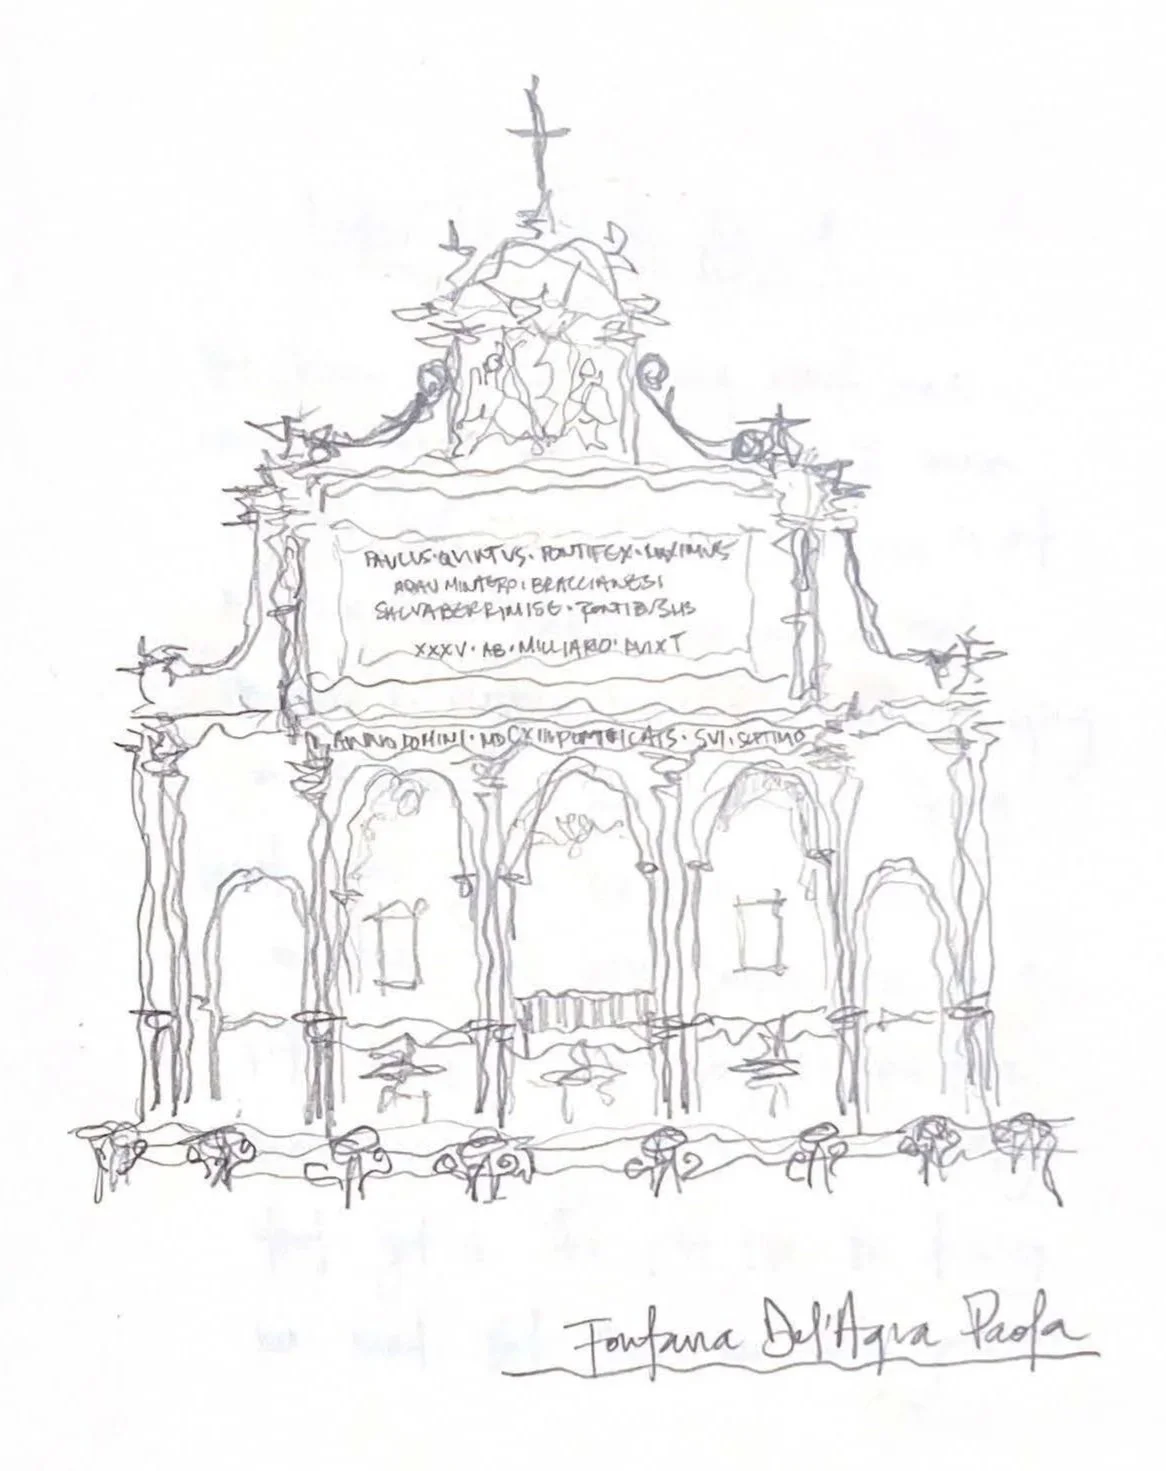 PAVLVS·QVINTVS·PONTIFEX·MAXIMVS
AQAV MINTERO·BRACCIANESI
SALVABERRIMISE·FONTIBVSHS
XXXV·AB·MILLIARO·AVIXT
ANNO DOMINI·MDCXII PONTFICATS·SVI·SEPTIMO
Fontana Del'Aqua Paola